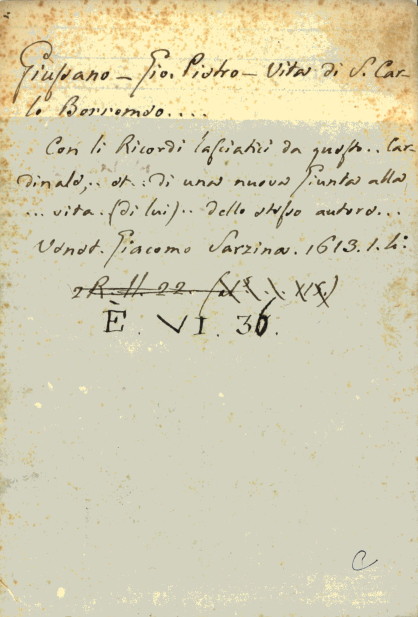 Giussano - Gio. Pietro - Vita di S. Car-
lo Borromeo....
Con li Ricordi lasciatici da questo.. Car
dinale,.. et.. di una nuova Giunta alla
... vita. (di lui).. dello stesso autore...
Venet. Giacomo Sarzina. 1613. 1. 4°.
2 R. H. 22.
È. VI. 36.
C